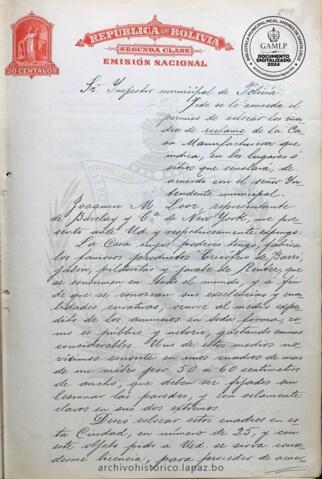 REPUBLICA DE BOLIVIA
SEGUNDA CLASE
EMISIÓN NACIONAL
20 CENTAVOS
BIBLIOTECA MUNICIPAL MCAL. ANDRÉS DE SANTA CRUZ
GAMLP
DOCUMENTO
DIGITALIZADO
2024
Sr. Inspector municipal de Policía
Pide se le conceda el
permiso de colocar los cua
dros de reclame de la Ca
sa Manufacturera que
indica, en los lugares ó
sitios que señalará, de
acuerdo con el señor In
tendente municipal.
Joaquin M. representante
de Barclay y Cª de New York, me pre
sento ante Ud. y respetuosamente expongo:
La Casa cuyos poderes tengo, fabrica
los famosos productos Tricofero de Barri,
jabon, pildoritas y de Reuter, que
se consumen en todo el mundo, y a fin
de que se conozcan sus excelencias y cua
lidades curativas, ocurre al medio expe
dito de los anuncios en toda forma, co
mo es público y notorio, gastando sumas
considerables. Uno de estos medios no
vísimos consiste en unos cuadros de mas
de un metro por 50 a 60 centímetros
de ancho, que deben ser fijados sin
lesionar las paredes, y con solamente
clavos en sus dos extremos.
Deseo colocar estos cuadros en es
ta Ciudad, en número de 25, y con
este objeto pido a Ud. se sirva conce
derme licencia, para proceder de acuer
archivohistorico.lapaz.bo